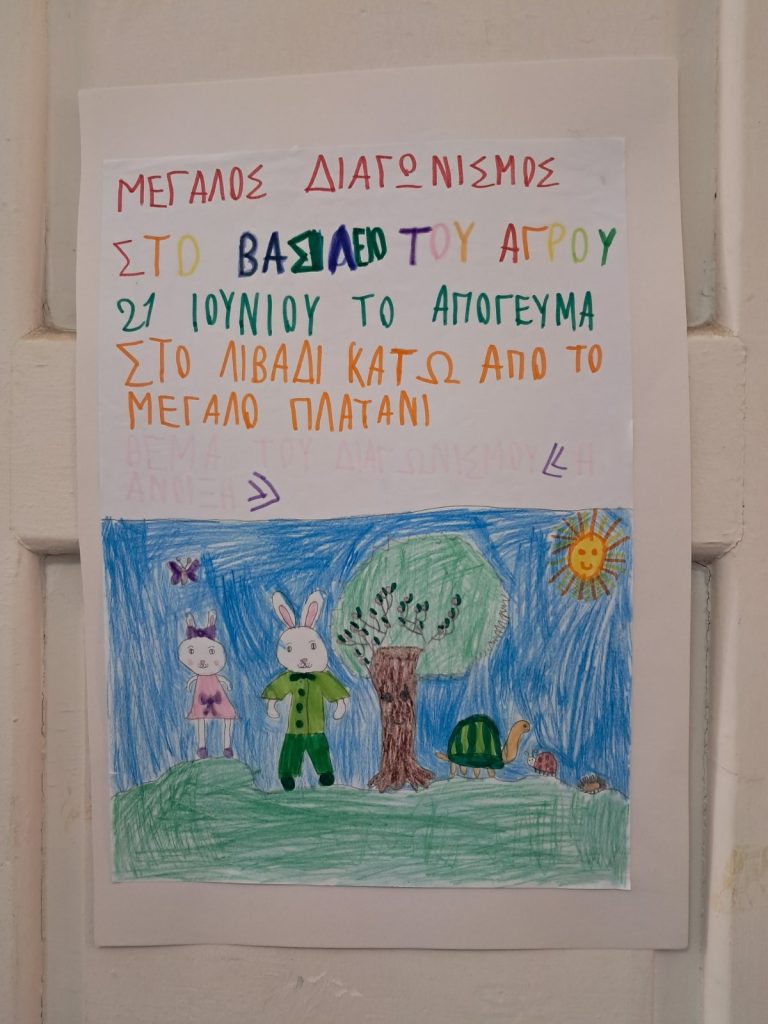 ΜΕΓΑΛΟΣ ΔΙΑΓΩΝΙΣΜΟΣ
ΣΤΟ ΒΑΣΙΛΕΙΟ ΤΟΥ ΑΓΡΟΥ
21 ΙΟΥΝΙΟΥ ΤΟ ΑΠΟΓΕΥΜΑ
ΣΤΟ ΛΙΒΑΔΙ ΚΑΤΩ ΑΠΟ ΤΟ
ΜΕΓΑΛΟ ΠΛΑΤΑΝΙ
ΘΕΜΑ ΤΟΥ ΔΙΑΓΩΝΙΣΜΟΥ << Η
ΑΝΟΙΞΗ >>